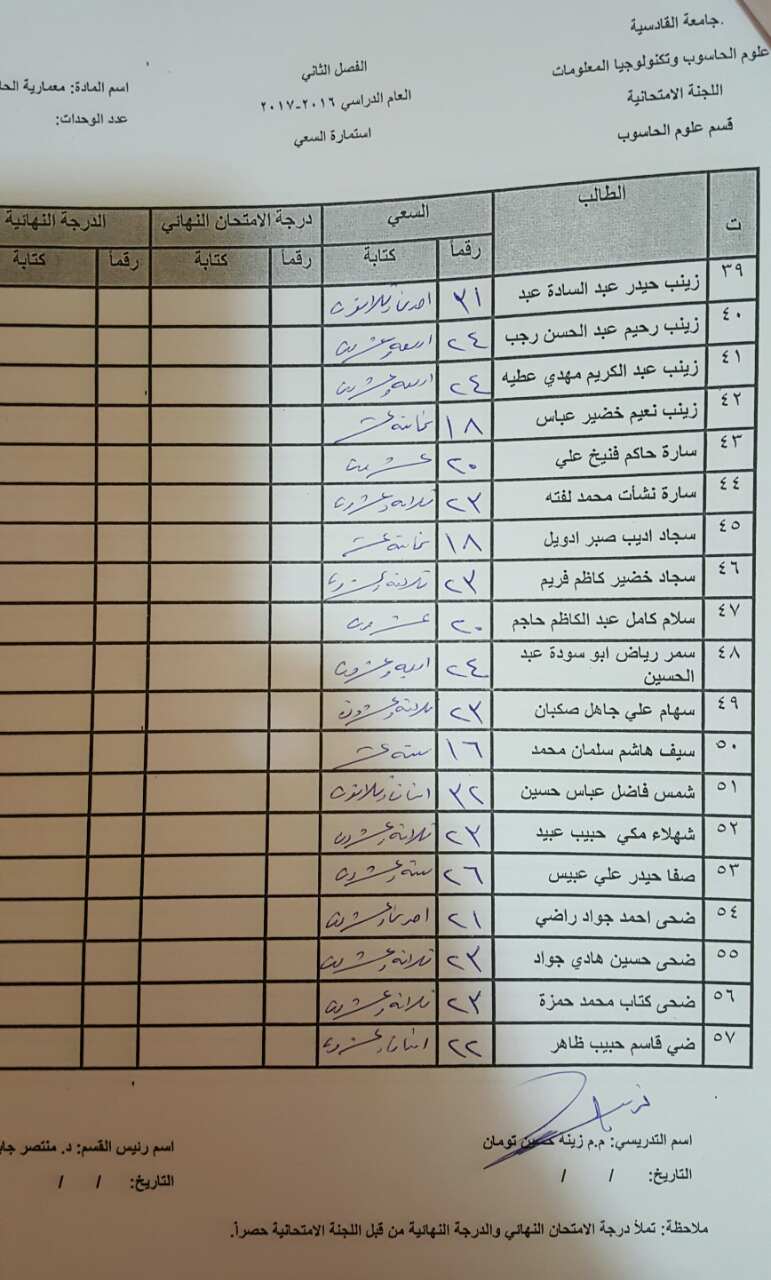 جامعة القادسية.
علوم الحاسوب وتكنولوجيا المعلومات
اللجنة الامتحانية
قسم علوم الحاسوب
الفصل الثاني
العام الدراسي ٢٠١٦-٢٠١٧
استمارة السعي
اسم المادة: معمارية الحا
عدد الوحدات:
ت الطالب السعي درجة الامتحان النهائي الدرجة النهائية
رقماً كتابة رقماً كتابة رقماً كتابة
٣٩ زينب حيدر عبد السادة عبد ٣١ احدى وثلاثون
٤٠ زينب رحيم عبد الحسن رجب ٢٤ اربعة وعشرين
٤١ زينب عبد الكريم مهدي عطيه ٢٤ اربعة وعشرين
٤٢ زينب نعيم خضير عباس ١٨ ثمانية عشر
٤٣ سارة حاكم فنيخ علي ٢٠ عشرين
٤٤ سارة نشأت محمد لفته ٢٣ ثلاثة وعشرون
٤٥ سجاد اديب صبر ادويل ١٨ ثمانية عشر
٤٦ سجاد خضير كاظم فريم ٢٣ ثلاثة وعشرون
٤٧ سلام كامل عبد الكاظم حاجم ٢٠ عشرون
٤٨ سمر رياض ابو سودة عبد الحسين ٢٤ اربعة وعشرون
٤٩ سهام علي جاهل صكبان ٢٣ ثلاثة وعشرون
٥٠ سيف هاشم سلمان محمد ١٦ ستة عشر
٥١ شمس فاضل عباس حسين ٣٢ اثنان وثلاثون
٥٢ شهلاء مكي حبيب عبيد ٢٣ ثلاثة وعشرون
٥٣ صفا حيدر علي عبيس ٢٦ ستة وعشرون
٥٤ ضحى احمد جواد راضي ٢١ احدى وعشرين
٥٥ ضحى حسين هادي جواد ٢٣ ثلاثة وعشرين
٥٦ ضحى كتاب محمد حمزة ٢٣ ثلاثة وعشرين
٥٧ ضي قاسم حبيب ظاهر ٢٢ اثنان وعشرون
اسم التدريسي: م.م زينة حسين تومان
التاريخ: / /
اسم رئيس القسم: د. منتصر جا
التاريخ: / /
ملاحظة: تملأ درجة الامتحان النهائي والدرجة النهائية من قبل اللجنة الامتحانية حصراً.